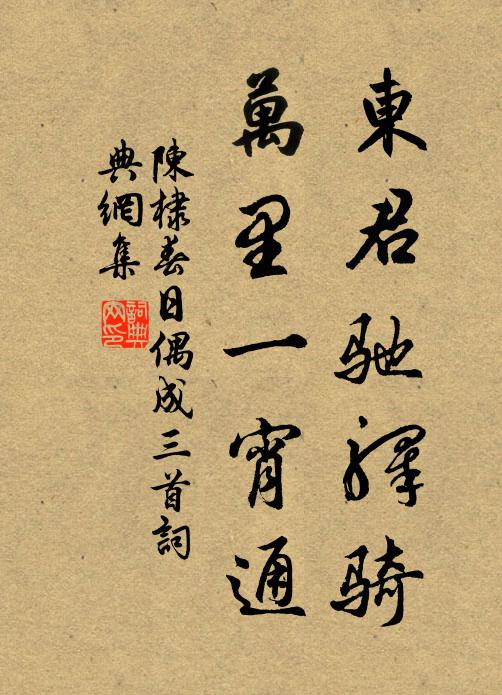 東君馳驛騎
萬里一宵通
陳棣春日偶成三首詞
典網集
詞典
网印